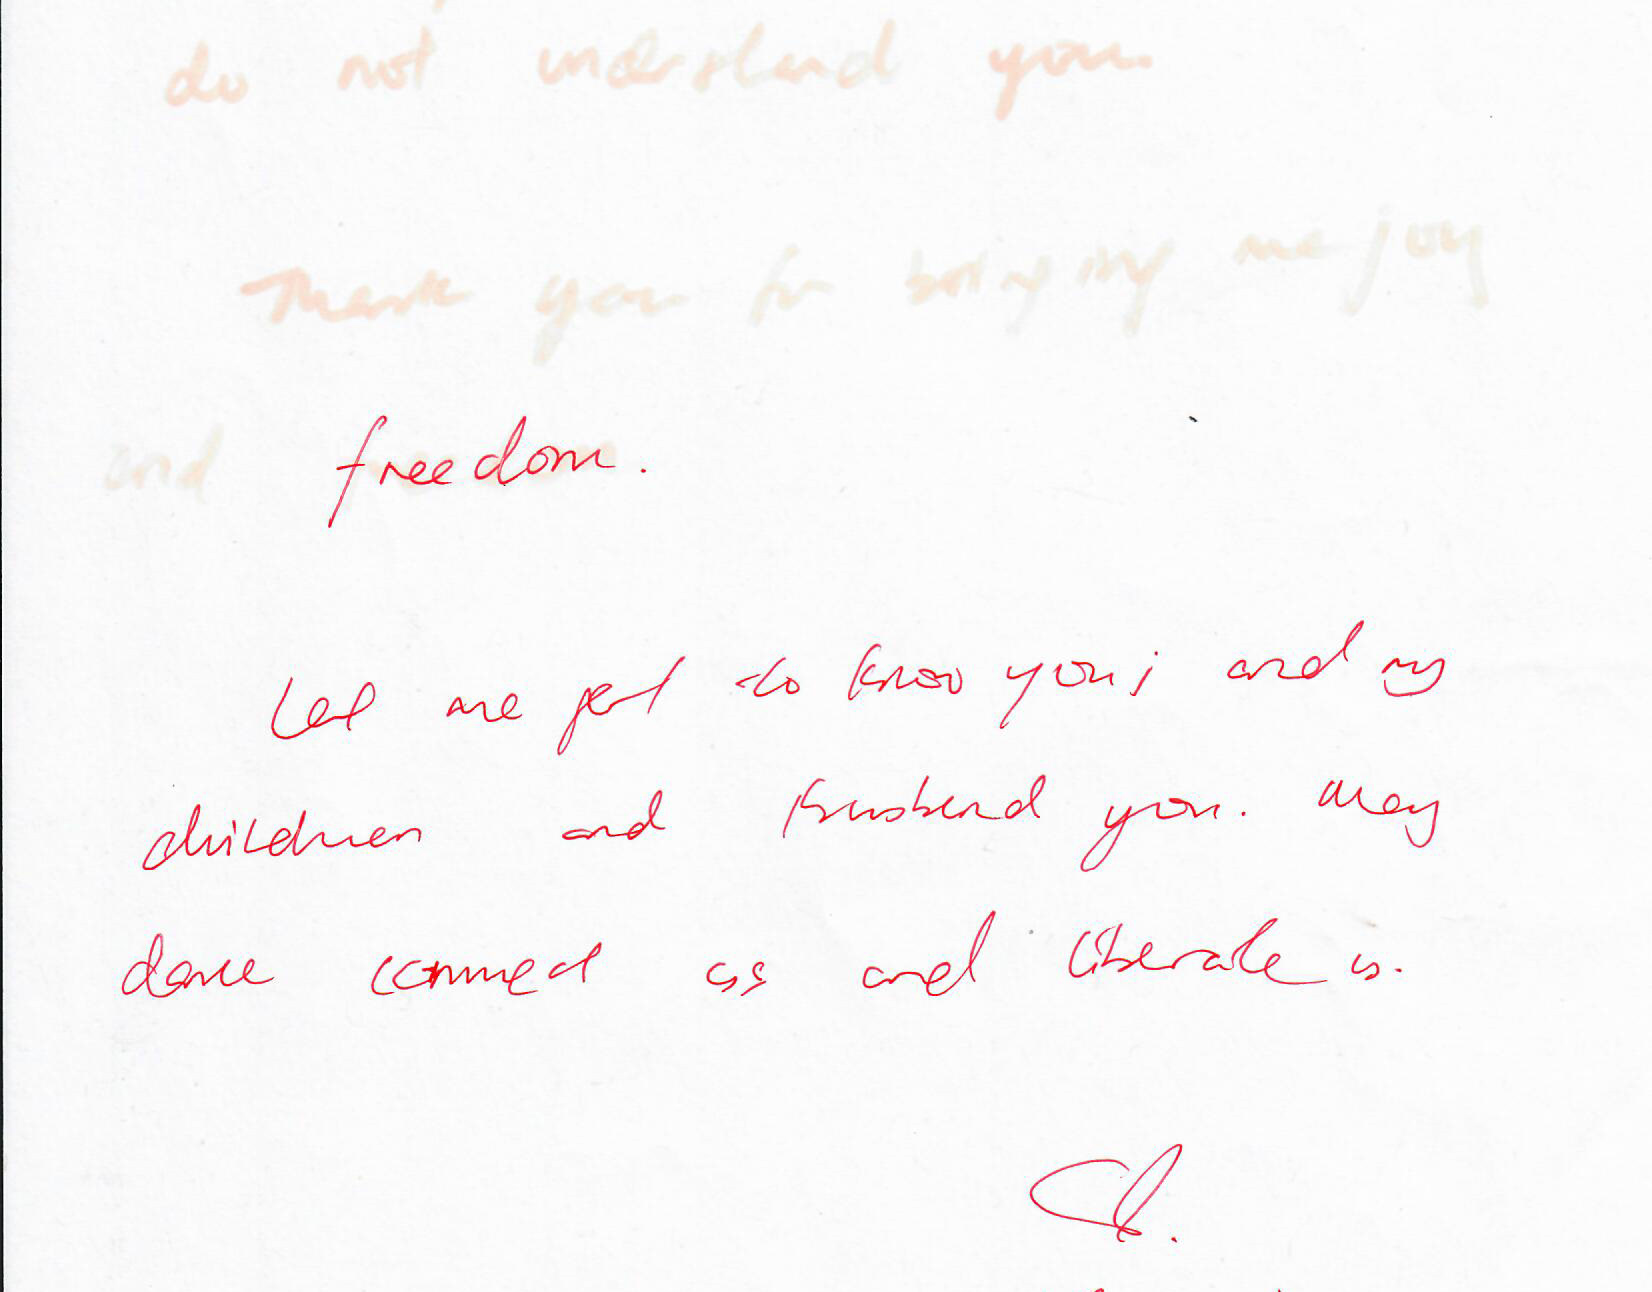 do not understand you.
Thank you for bringing me joy
and freedom.
Let me get to know you; and my
children and husband you. May
dance connect us and liberate us.